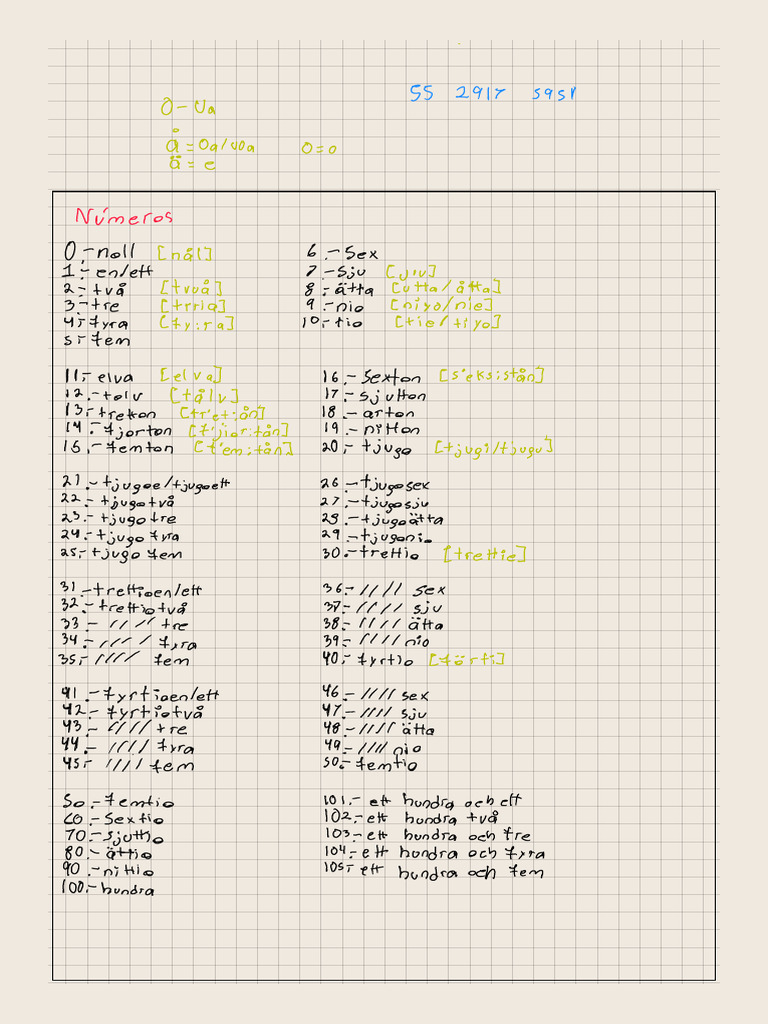 55 2917 5951
O - Ua
å = Oa/UOa O = o
ä = e
Números
0.- noll [nål]
1.- en/ett
2.- två [tvuå]
3.- tre [trria]
4.- fyra [fy:ra]
5.- fem
6.- sex
7.- sju [jiu]
8.- åtta [utta/åtta]
9.- nio [niyo/nie]
10.- tio [tie/tiyo]
11.- elva [elva]
12.- tolv [tålv]
13.- tretton [tr'et:ån]
14.- fjorton [f'jior:tån]
15.- femton [f'em:tån]
16.- sexton [s'eks:stån]
17.- sjutton
18.- arton
19.- nitton
20.- tjugo [tjugi/tjugu]
21.- tjugoe/tjugoett
22.- tjugotvå
23.- tjugo tre
24.- tjugo fyra
25.- tjugo fem
26.- tjugosex
27.- tjugosju
28.- tjugoätta
29.- tjugonio
30.- trettio [trettie]
31.- trettioen/ett
32.- trettiotvå
33.- //// tre
34.- //// fyra
35.- //// fem
36.- //// sex
37.- //// sju
38.- //// ätta
39.- //// nio
40.- fyrtio [förti]
41.- fyrtioen/ett
42.- fyrtiotvå
43.- //// tre
44.- //// fyra
45.- //// fem
46.- //// sex
47.- //// sju
48.- //// ätta
49.- //// nio
50.- femtio
50.- femtio
60.- sextio
70.- sjuttio
80.- ättio
90.- nittio
100.- hundra
101.- ett hundra och ett
102.- ett hundra två
103.- ett hundra och tre
104.- ett hundra och fyra
105.- ett hundra och fem